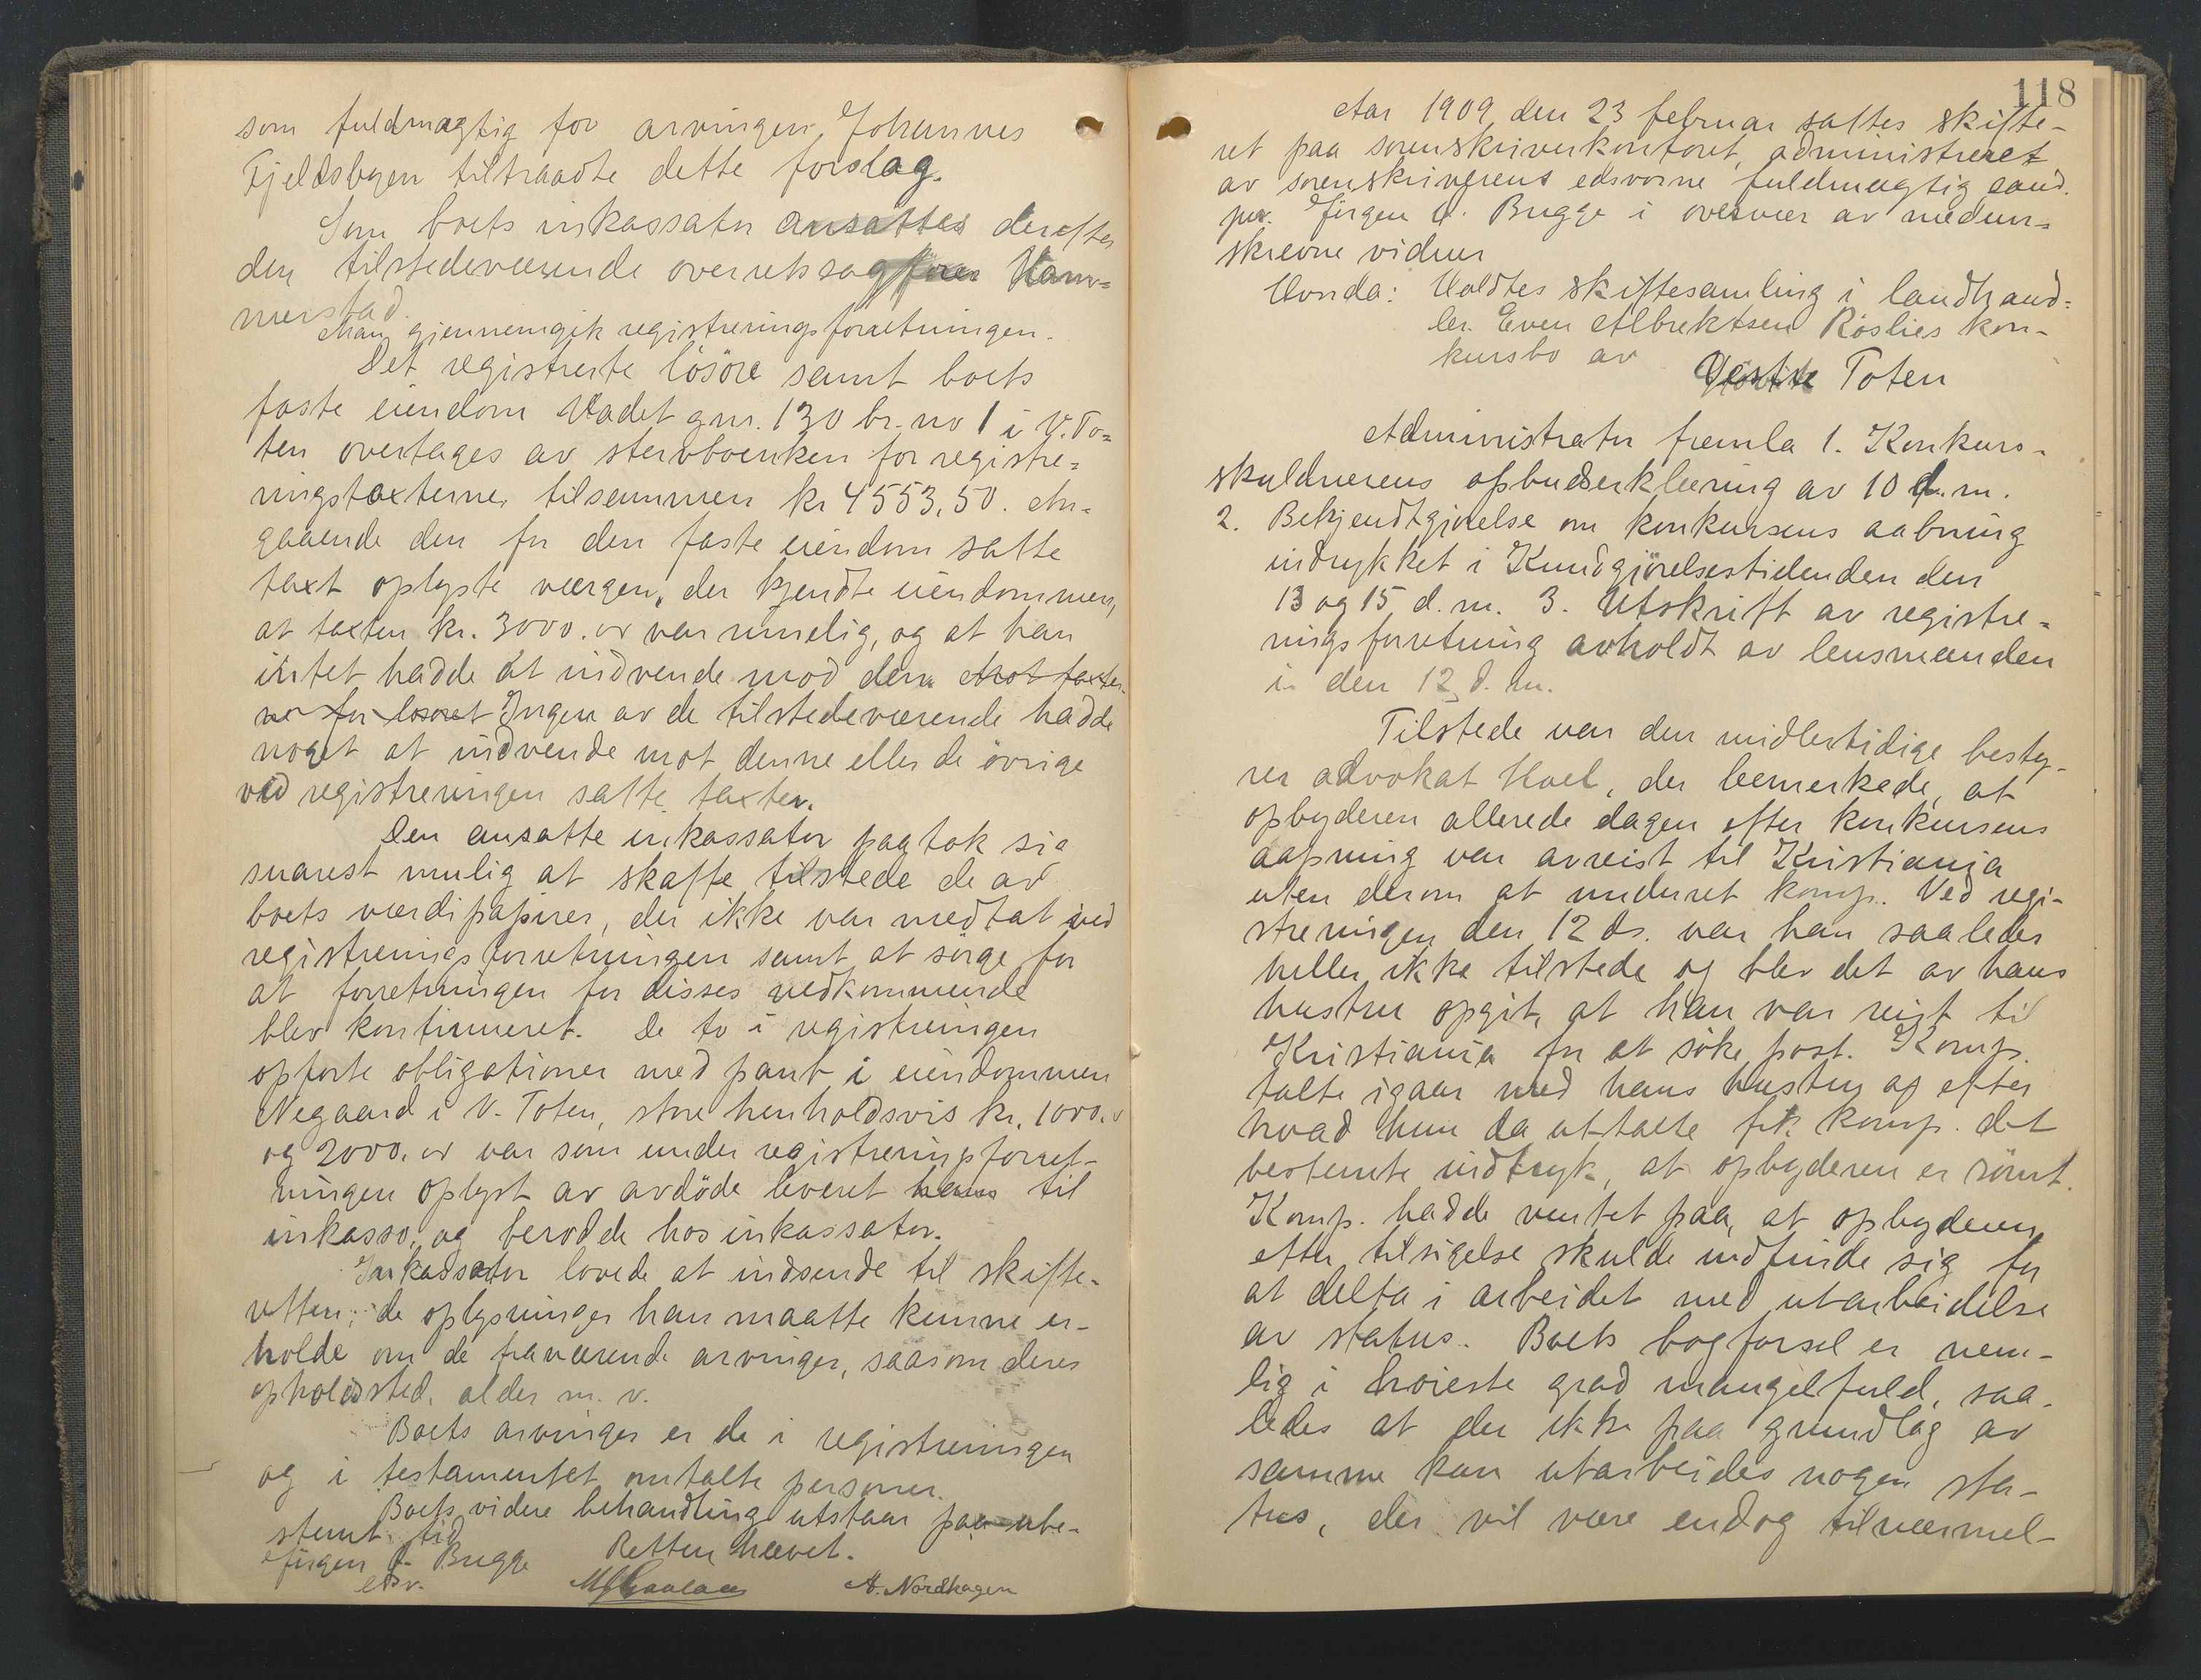 som fuldmægtig for arvingen, Johannes
Fjeldsbyen tiltraadte dette forslag.
Som boets inkassator ansattes derefter
den tilstedeværende overretssagfører Ham-
merstad.
Man gjennemgik registreringsforretningen.
Det registrerte lösöre samt boets
faste eiendom Vadet gnr. 130 br. no 1 i V. To-
ten overtages av stervboenken for registre-
ringstaxterne, tilsammen kr 4553,50. An-
gaaende den for den faste eiendom satte
taxt oplyste værgen, der kjendte eiendommen,
at taxten kr. 3000.00 var rimelig, og at han
intet hadde at indvende mod den. Mot taxter-
ne for løsøret Ingen av de tilstedeværende hadde
noget at indvende mot denne eller de övrige
ved registreringen satte taxter.
Den ansatte inkassator paatok sig
snarest mulig at skaffe tilstede de av
boets værdipapirer, der ikke var medtat ved
registreringsforretningen samt at sörge for
at forretningen for disses vedkommende
blev kontinueret. De to i registreringen
opførte obligationer med pant i eiendommen
Negaard i V. Toten, store henholdsvis kr. 1000.00
og 2000.00 var som under registreringsforret-
ningen oplyst av avdöde leveret hans til
inkasso, og berodde hos inkassator.
Inkassator lovede at indsende til skifte-
retten de oplysninger han maatte kunne er-
holde om de fraværende arvinger, saasom deres
opholdssted, alder m. v.
Boets arvinger er de i registreringen
og i testamentet omtalte personer.
Boets videre behandling utstaar paa ube-
stemt tid
Retten hævet.
Jürgen A. Bugge
edsv.
A. Nordhagen
118
Aar 1909 den 23 februar sattes skifte-
ret paa sorenskriverkontoret, administreret
av sorenskriverens edsvorne fuldmægtig cand.
jur. Jürgen A. Bugge i overvær av nedun-
skrevne vidner
Hvorda: Holdtes skiftesamling i landhand-
ler Even Albrektsen Röslies kon-
kursbo av Vestre Toten
Administrator fremla 1. Konkurs-
skyldnerens opbudserklæring av 10 d. m.
2. Bekjendtgjørelse om konkursens aabning
indrykket i Kundgjörelsestidenden den
13 og 15 d. m. 3. Utskrift av registre-
ringsforretning avholdt av lensmanden
i den 12 d. m.
Tilstede var den midlertidige besty-
rer advokat Hoel, der bemerkede, at
opbyderen allerede dagen efter konkursens
aapning var avreist til Kristiania
uten derom at underret komp. Ved regi-
streringen den 12 ds. var han saaledes
heller ikke tilstede og blev det av hans
hustru opgit, at han var reist til
Kristiania for at söke post. Komp.
talte igaar med hans hustru og efter
hvad hun da uttalte fik komp. det
bestemte indtryk, at opbyderen er römt.
Komp. hadde ventet paa, at opbyderen
efter tilsigelse skulde indfinde sig for
at delta i arbeidet med utarbeidelse
av status. Boets bogførsel er nem-
lig i høieste grad mangelfuld, saa-
ledes at der ikke paa grundlag av
samme kan utarbeides nogen sta-
tus, der vil være endog tilnærmel-